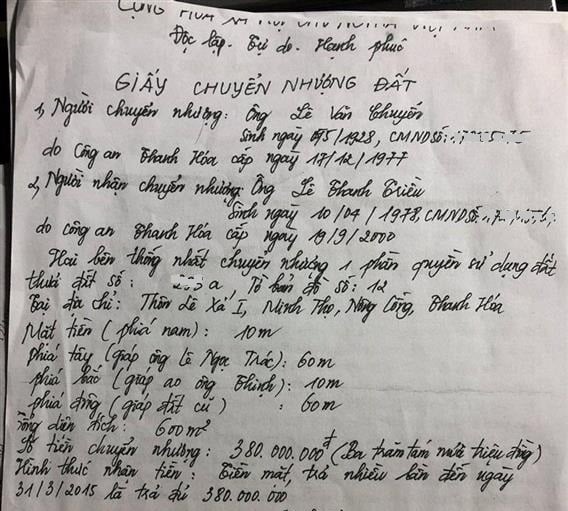 CỘNG HÒA XÃ HỘI CHỦ NGHĨA VIỆT NAM
Độc lập - Tự do - Hạnh phúc
GIẤY CHUYỂN NHƯỢNG ĐẤT
1, Người chuyển nhượng: Ông Lê Văn Chuyến
Sinh ngày /5/1928, CMND Số:
do Công an Thanh Hóa cấp ngày 17/12/1977
2, Người nhận chuyển nhượng: Ông Lê Thanh Triều
Sinh ngày 10/04/1978, CMND Số:
do công an Thanh Hóa cấp ngày 19/9/2000
Hai bên thống nhất chuyển nhượng 1 phần quyền sử dụng đất
thửa đất số: a, Tờ bản đồ số: 12
Tại địa chỉ: Thôn Lê Xá I, Minh Thọ, Nông Cống, Thanh Hóa
Mặt tiền (phía nam): 10m
phía tây (giáp ông Lê Ngọc Trác): 60m
phía bắc (giáp ao ông Thịnh): 10m
phía đông (giáp đất cũ): 60m
Tổng diện tích: 600m²
Số tiền chuyển nhượng: 380.000.000đ (Ba trăm tám mươi triệu đồng)
Hình thức nhận tiền: Tiền mặt, trả nhiều lần đến ngày
31/3/2015 là trả đủ 380.000.000